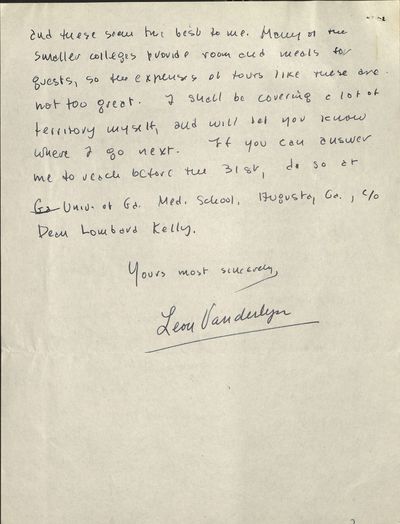 and these seem the best to me. Many of the
smaller colleges provide room and meals for
guests, so the expenses of tours like these are
not too great. I shall be covering a lot of
territory myself, and will let you know
where I go next. If you can answer
me to reach before the 31st, do so at
Ga Univ. of Ga. Med. School, Augusta, Ga., c/o
Dean Lombard Kelly.
Yours most sincerely,
Leon Vanderlyn